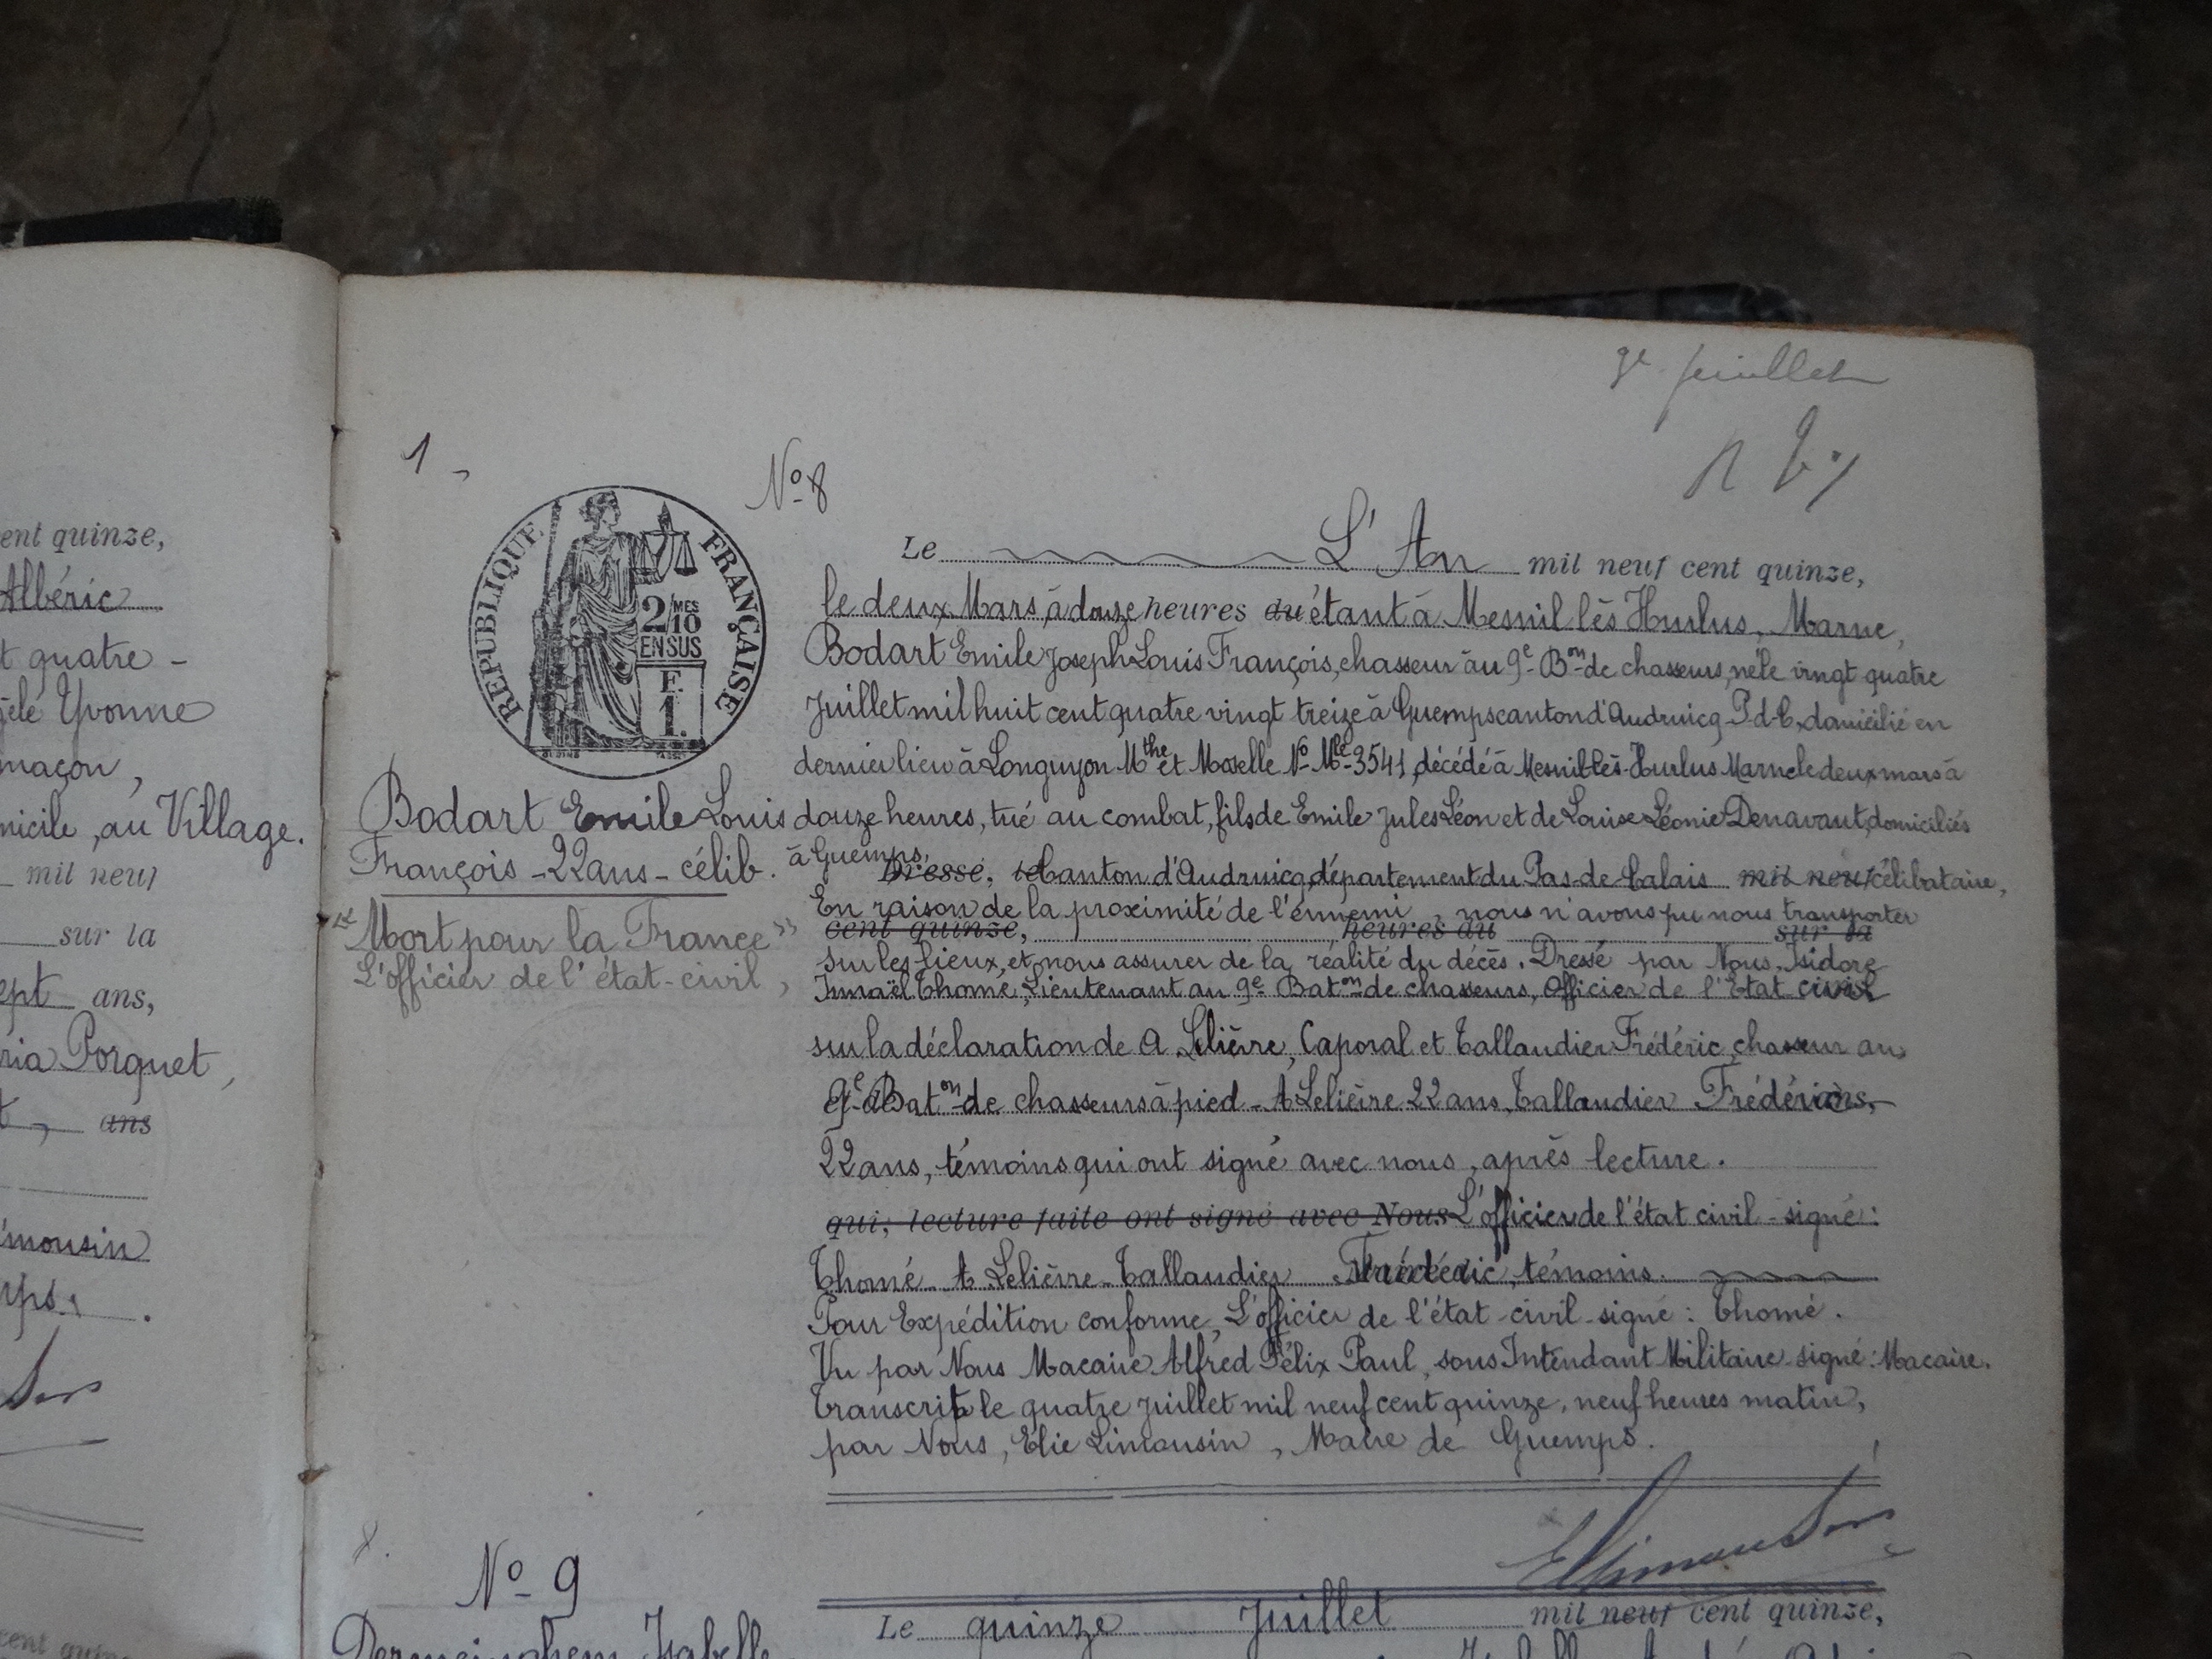 ent quinze,
Albéric
t quatre -
èle Yvonne
maçon,
micile, au Village.
mil neuf
sur la
ept ans,
ria Porquet,
ans
imousin
mps.
9e feuillet
1
No 8
RÉPUBLIQUE FRANÇAISE
2/10 MES
EN SUS
F.
1.
Bodart Emile Louis
François - 22 ans - célib.
"Mort pour la France"
L'officier de l'état-civil,
Le L'An mil neuf cent quinze,
le deux Mars, à douze heures du étant à Mesnil lès Hurlus, Marne,
Bodart Emile Joseph Louis François, chasseur au 9e Bon de chasseurs, né le vingt quatre
Juillet mil huit cent quatre vingt treize à Guemps canton d'Audruicq P-d-C, domicilié en
dernier lieu à Longuyon Mthe et Moselle No Mle 3541, décédé à Mesnil-lès-Hurlus Marne le deux mars à
douze heures, tué au combat, fils de Emile Jules Léon et de Louise Léonie Denavaut, domiciliés
à Guemps,
Dressé, le Canton d'Audruicq, département du Pas de Calais mil neuf célibataire,
En raison de la proximité de l'ennemi, nous n'avons pu nous transporter
cent quinze, heures du sur la
sur les lieux, et nous assurer de la réalité du décès. Dressé par Nous, Isidore
Ismaël Thomé, Lieutenant au 9e Baton de chasseurs, Officier de l'Etat civil
sur la déclaration de A Lelièvre, Caporal et Tallaudier Frédéric, chasseur au
9e Baton de chasseurs à pied - A Lelièvre 22 ans, Tallaudier Frédéric ans,
22 ans, témoins qui ont signé avec nous, après lecture.
qui, lecture faite ont signé avec Nous L'officier de l'état civil - signé:
Thomé - A Lelièvre - Tallaudier Frédéric, témoins.
Pour Expédition conforme, L'officier de l'état-civil - signé: Thomé.
Vu par Nous Macaire Alfred Félix Paul, sous Intendant Militaire - signé: Macaire.
Transcrit le quatre Juillet mil neuf cent quinze, neuf heures matin,
par Nous, Élie Limousin, Maire de Guemps.
ELimousin
No 9
Le quinze Juillet mil neuf cent quinze,
Isabelle